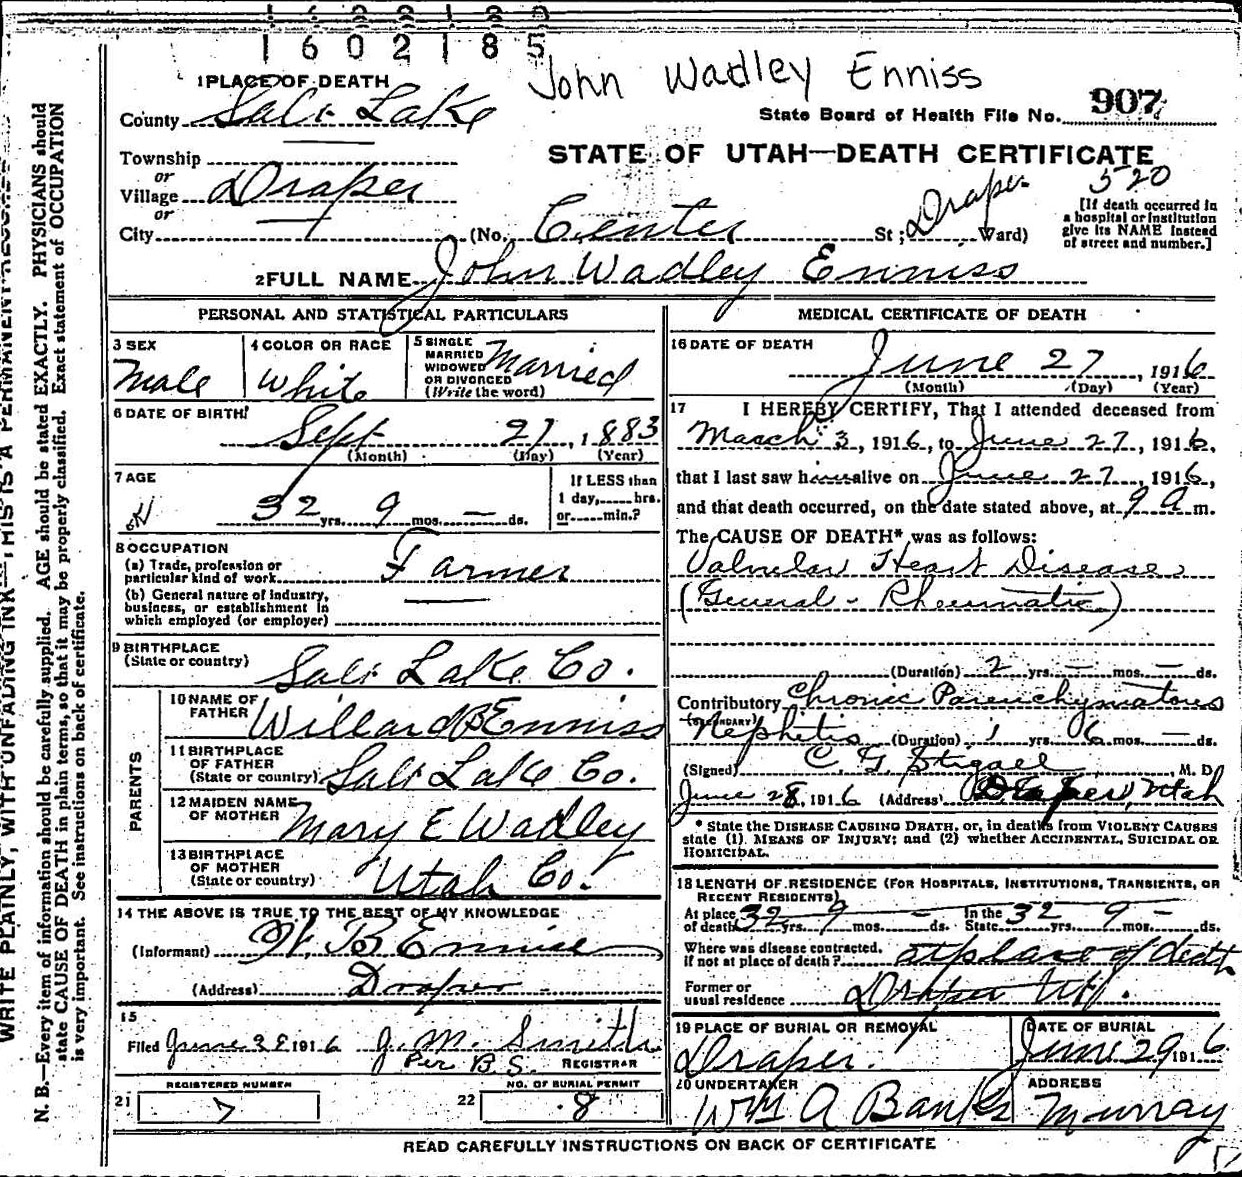 1602185
John Wadley Enniss
1 PLACE OF DEATH
County Salt Lake
State Board of Health File No. 907
Township
or
Village Draper
or
City
STATE OF UTAH—DEATH CERTIFICATE
520
(No. Center St; Draper Ward)
[If death occurred in
a hospital or institution
give its NAME instead
of street and number.]
2 FULL NAME John Wadley Enniss
PERSONAL AND STATISTICAL PARTICULARS
3 SEX
Male
4 COLOR OR RACE
White
5 SINGLE
MARRIED
WIDOWED
OR DIVORCED
(Write the word)
Married
6 DATE OF BIRTH
Sept 27, 1883
(Month) (Day) (Year)
7 AGE
32 yrs. 9 mos. — ds.
If LESS than
1 day, hrs.
or min.?
8 OCCUPATION
(a) Trade, profession or
particular kind of work Farmer
(b) General nature of industry,
business, or establishment in
which employed (or employer)
9 BIRTHPLACE
(State or country) Salt Lake Co.
PARENTS
10 NAME OF
FATHER Willard B Enniss
11 BIRTHPLACE
OF FATHER
(State or country) Salt Lake Co.
12 MAIDEN NAME
OF MOTHER Mary E Wadley
13 BIRTHPLACE
OF MOTHER
(State or country) Utah Co.
14 THE ABOVE IS TRUE TO THE BEST OF MY KNOWLEDGE
(Informant) W. B Enniss
(Address) Draper
15
Filed June 28 1916 J. M. Smith
Per B.S. REGISTRAR
REGISTERED NUMBER
21 7
NO. OF BURIAL PERMIT
22 8
MEDICAL CERTIFICATE OF DEATH
16 DATE OF DEATH
June 27, 1916
(Month) (Day) (Year)
17 I HEREBY CERTIFY, That I attended deceased from
March 3, 1916, to June 27, 1916,
that I last saw him alive on June 27, 1916,
and that death occurred, on the date stated above, at 9 a m.
The CAUSE OF DEATH* was as follows:
Valvular Heart Disease
(General - Rheumatic)
(Duration) 2 yrs. — mos. — ds.
Contributory Chronic Parenchymatous
(SECONDARY) Nephitis (Duration) 1 yrs. 6 mos. — ds.
(Signed) C. G. Stigall, M. D
June 28, 1916 (Address) Draper, Utah
* State the DISEASE CAUSING DEATH, or, in deaths from VIOLENT CAUSES
state (1). MEANS OF INJURY; and (2) whether ACCIDENTAL, SUICIDAL OR
HOMICIDAL.
18 LENGTH OF RESIDENCE (FOR HOSPITALS, INSTITUTIONS, TRANSIENTS, OR
RECENT RESIDENTS)
At place
of death 32 yrs. 9 mos. — ds. In the
State 32 yrs. 9 mos. — ds.
Where was disease contracted.
if not at place of death? at place of death
Former or
usual residence Draper Ut.
19 PLACE OF BURIAL OR REMOVAL
Draper.
DATE OF BURIAL
June 29 1916
20 UNDERTAKER
Wm A Banks
ADDRESS
Murray
READ CAREFULLY INSTRUCTIONS ON BACK OF CERTIFICATE
WRITE PLAINLY, WITH UNFADING INK—THIS IS A PERMANENT RECORD
N. B.—Every item of information should be carefully supplied. AGE should be stated EXACTLY. PHYSICIANS should
state CAUSE OF DEATH in plain terms, so that it may be properly classified. Exact statement of OCCUPATION
is very important. See instructions on back of certificate.